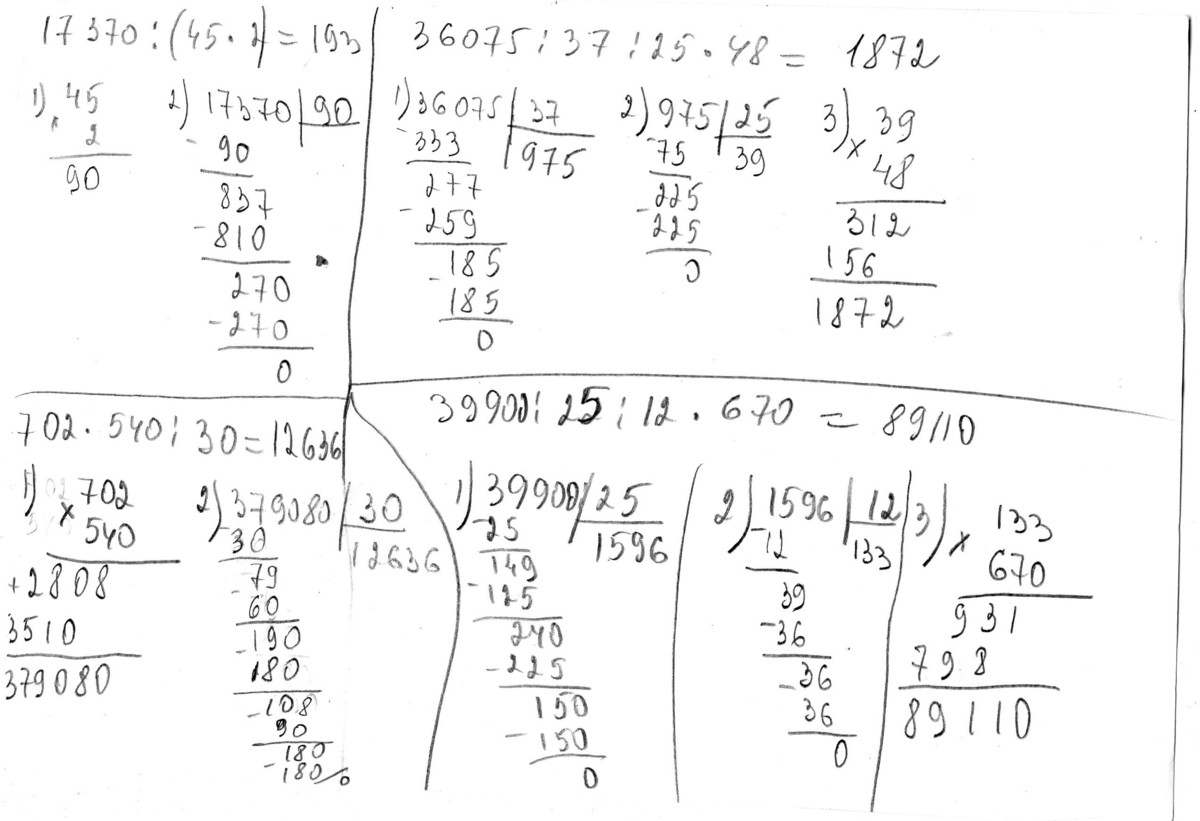 17370 : (45 · 2) = 193
1) 45
× 2
90
2) 17370 | 90
- 90
837
- 810
270
- 270
0
36075 : 37 : 25 · 48 = 1872
1) 36075 | 37
- 333 | 975
277
- 259
- 185
185
0
2) 975 | 25
- 75 | 39
225
- 225
0
3) 39
× 48
312
156
1872
702 · 540 : 30 = 12636
1) 702
× 540
+ 2808
3510
379080
2) 379080 | 30
- 30 | 12636
- 79
60
- 190
180
- 108
90
- 180
- 180
0
39900 : 25 : 12 · 670 = 89110
1) 39900 | 25
- 25 | 1596
149
- 125
240
- 225
150
- 150
0
2) 1596 | 12
- 12 | 133
39
- 36
- 36
36
0
3) 133
× 670
931
798
89110